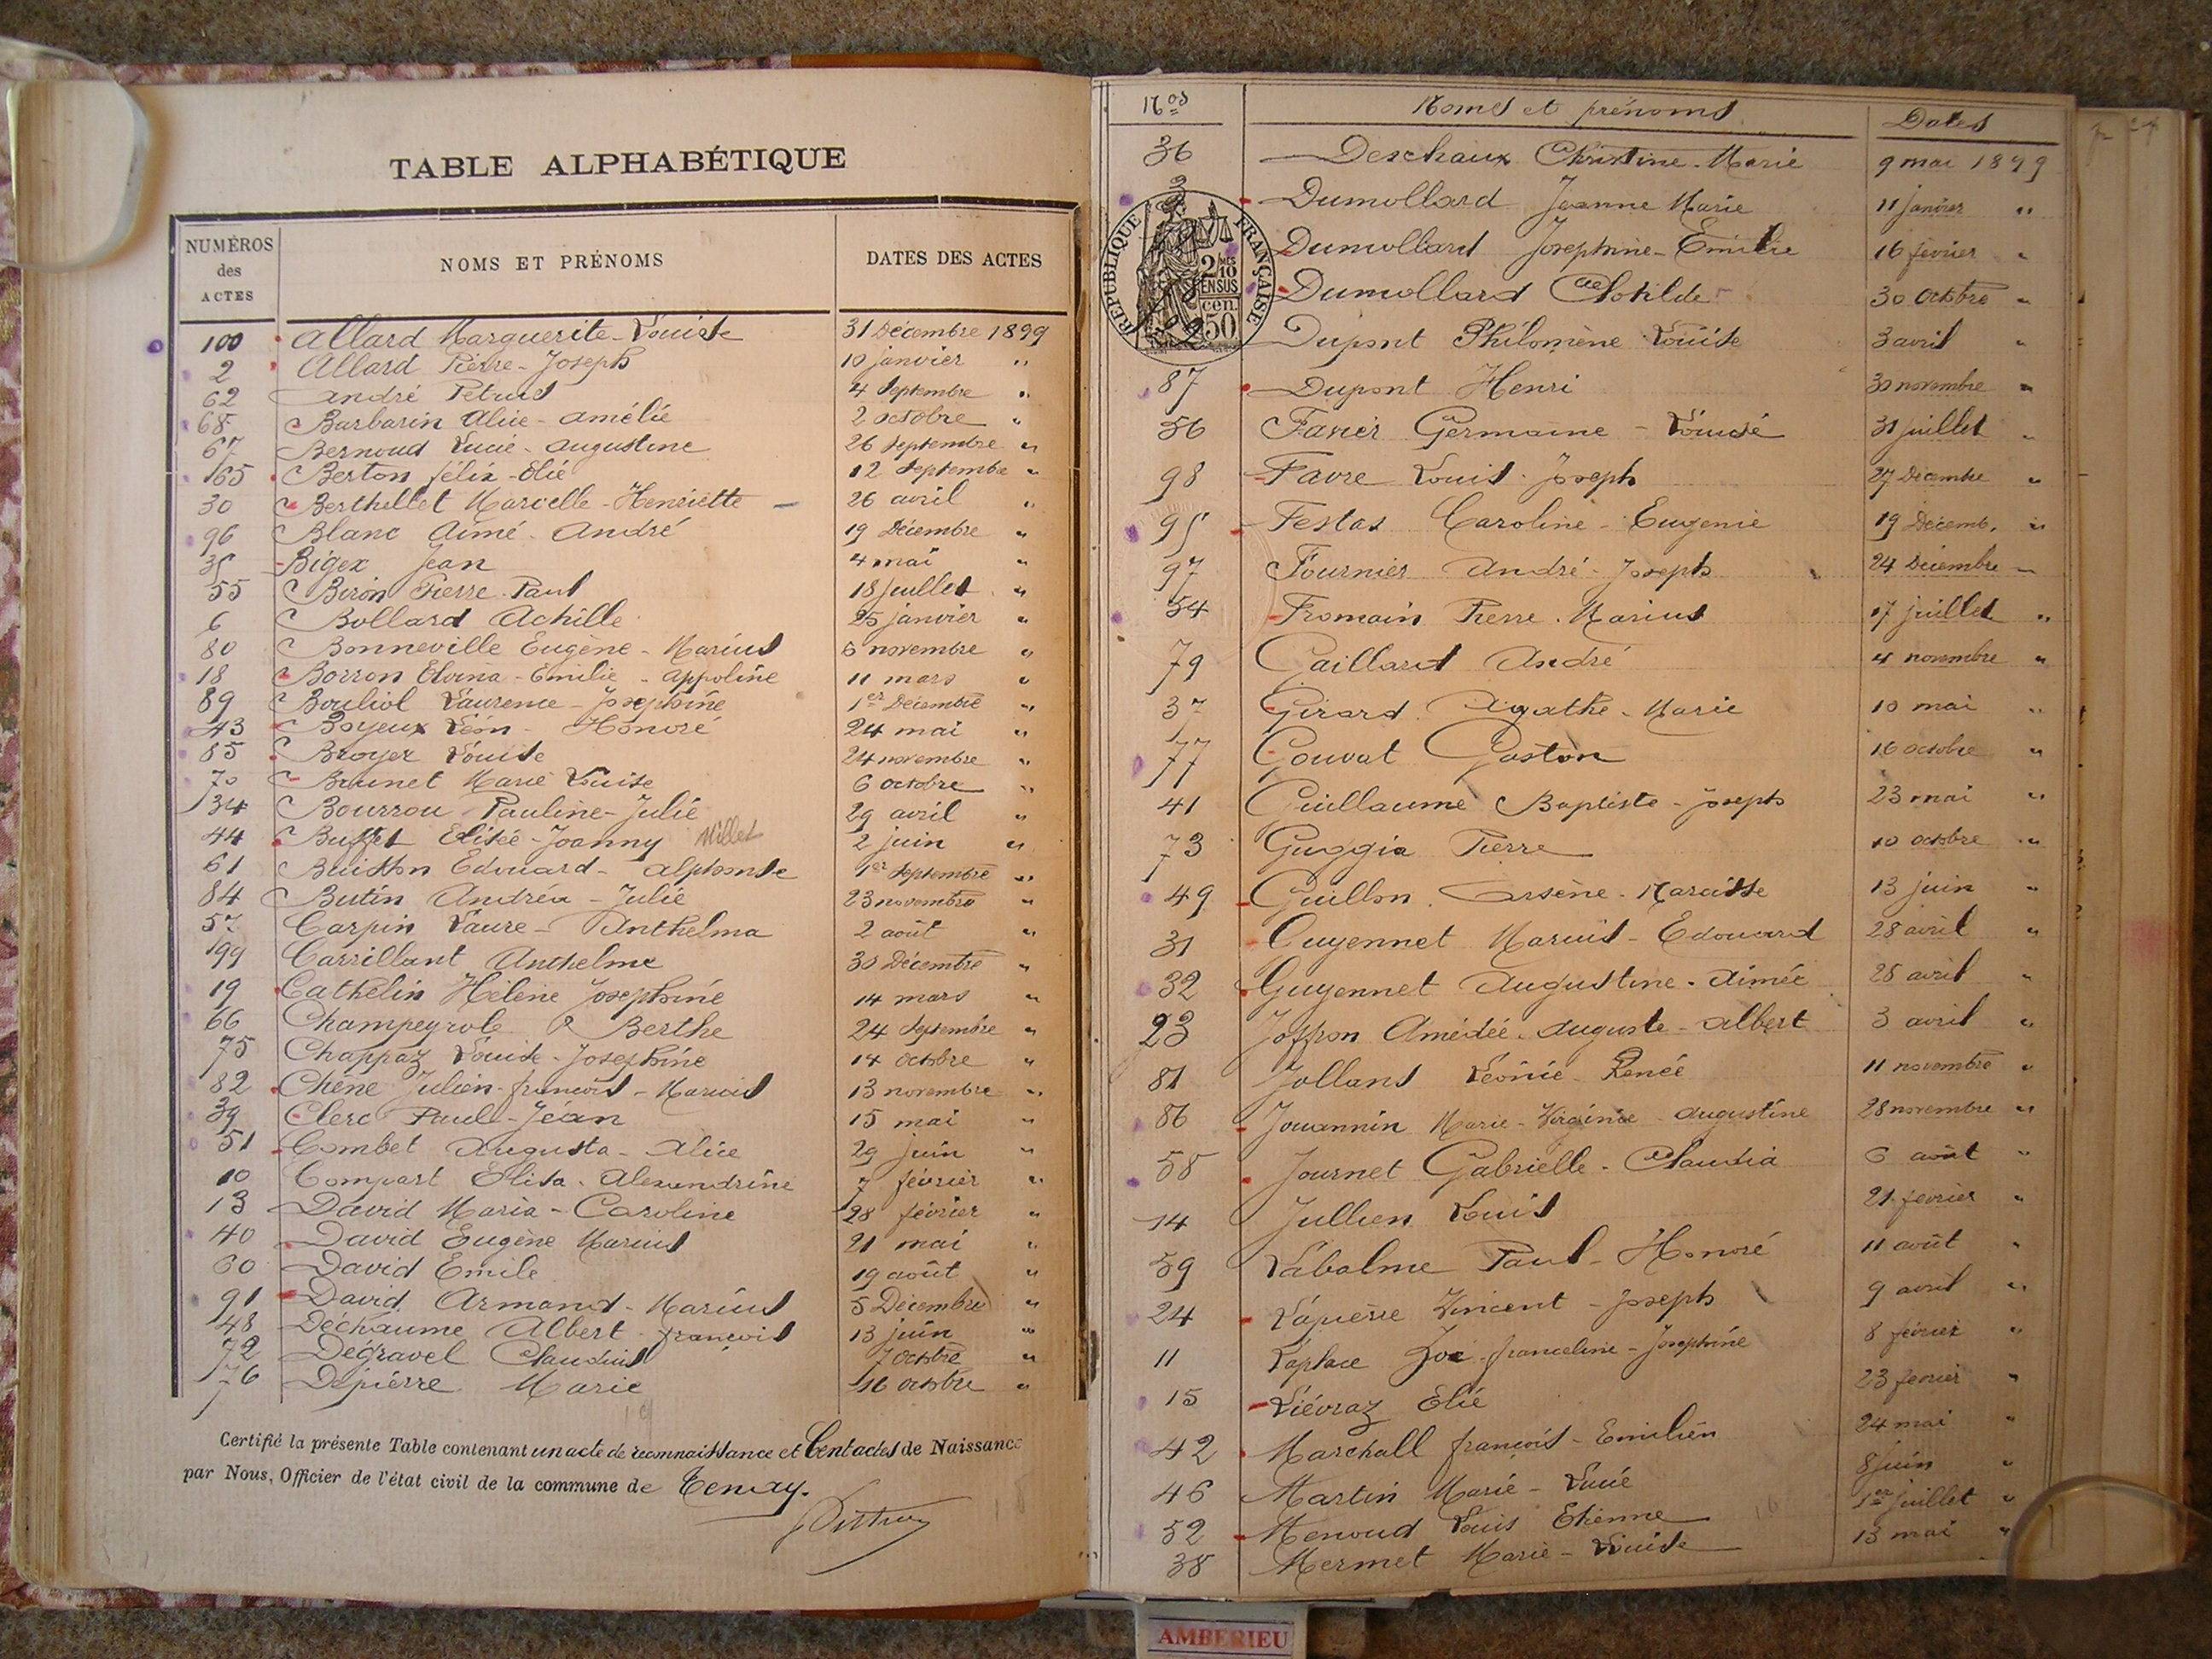 TABLE ALPHABÉTIQUE
NUMÉROS des ACTES NOMS ET PRÉNOMS DATES DES ACTES
100 Allard Marguerite-Louise 31 Décembre 1899
2 Allard Pierre-Joseph 10 janvier "
62 André Petrus 4 Septembre "
68 Barbarin Alice-Amélie 2 octobre "
67 Bernoud Lucie-Augustine 26 Septembre "
65 Berton félix-Elie 12 Septembre "
30 Berthellet Marcelle-Henriette 26 avril "
96 Blanc Aimé-André 19 Décembre "
35 Bigex Jean 4 mai "
55 Biron Pierre-Paul 18 Juillet "
6 Bollard Achille 25 janvier "
80 Bonneville Eugène-Marius 6 novembre "
18 Borron Elvina-Emilie-Appoline 11 mars "
89 Bouliol Laurence-Josephine 1er Décembre "
43 Boyeux Léon-Honoré 24 mai "
85 Broyer Louise 24 novembre "
70 Brunet Marie Louise 6 octobre "
34 Bourrou Pauline-Julie 29 avril "
44 Buffet Elisée-Joanny Millet 2 juin "
61 Buisson Edouard-Alphonse 1er Septembre "
84 Butin Andréa-Julie 23 novembre "
57 Carpin Laure-Anthelma 2 août "
99 Carrillant Anthelme 30 Décembre "
19 Cathelin Hélène Josephine 14 mars "
66 Champeyrol Berthe 24 Septembre "
75 Chappaz Louise-Josephine 14 octobre "
82 Chêne Julien-françois-Marius 13 novembre "
39 Clerc Paul-Jean 15 mai "
51 Combet Augusta-Alice 29 juin "
10 Compart Elisa-Alexandrine 7 février "
13 David Maria-Caroline 28 février "
40 David Eugène Marius 21 mai "
60 David Emile 19 août "
91 David Armand-Marius 5 Décembre "
48 Dechaume Albert-françois 13 juin "
72 Degravel Claudius 7 octobre "
76 Depierre Marie 16 octobre "
Certifié la présente Table contenant un acte de reconnaissance et Cent actes de Naissance
par Nous, Officier de l'état civil de la commune de Tenay.
Nos Noms et prénoms Dates
36 Deschaux Christine-Marie 9 mai 1899
3 Dumollard Jeanne Marie 11 janvier "
Dumollard Josephine-Emilie 16 fevrier "
Dumollard Clotilde 30 Octobre "
Dupont Philomène Louise 3 avril "
RÉPUBLIQUE FRANÇAISE
2/10 MES
EN SUS
50 cen
87 Dupont Henri 30 novembre "
56 Favier Germaine-Louise 31 juillet "
98 Favre Louis-Joseph 27 Décembre "
95 Festas Caroline-Eugenie 19 Décemb. "
97 Fournier André-Joseph 24 Décembre "
54 Fromain Pierre-Marius 17 juillet "
79 Gaillard André 4 novembre "
37 Girard Agathe-Marie 10 mai "
77 Gouvat Gaston 16 octobre "
41 Guillaume Baptiste-Joseph 23 mai "
73 Guggia Pierre 10 octobre "
49 Guillon Arsène-Narcisse 13 juin "
31 Guyennet Marius-Edouard 28 avril "
32 Guyennet Augustine-Aimée 28 avril "
23 Joffron Amédée-Auguste-Albert 3 avril "
81 Jolland Léonie-Renée 11 novembre "
86 Jouannin Marie-Virginie-Augustine 28 novembre "
58 Journet Gabrielle-Claudia 6 août "
14 Jullien Louis 21 fevrier "
59 Labalme Paul-Honoré 11 août "
24 Lapierre Vincent-Joseph 9 avril "
11 Laplace Zoé-franceline-Josephine 8 février "
15 Liévraz Elie 23 fevrier "
42 Marchall françois-Emilien 24 mai "
46 Martin Marie-Lucie 8 juin "
52 Menoud Louis Etienne 1er juillet "
38 Mermet Marie-Louise 13 mai "
AMBERIEU